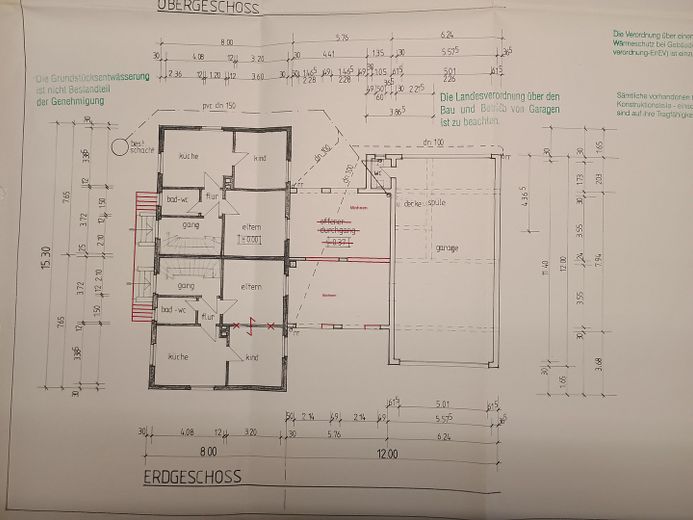 OBERGESCHOSS
5.76
6.24
8.00
4.41
1.35
5.57⁵
30
4.08
12
3.20
2.36
1.20
12
3.60
5.01
2.26
2.21⁵
3.86⁵
Die Grundstücksentwässerung
ist nicht Bestandteil
der Genehmigung
Die Verordnung über einen
Wärmeschutz bei Gebäude
verordnung-EnEV) ist einzu
Die Landesverordnung über den
Bau und Betrieb von Garagen
ist zu beachten.
Sämtliche vorhandenen
Konstruktionsteile - eines
sind auf ihre Tragfähigkeit
pvc dn 150
best
schacht
dn 100
dn 100
dn 100
küche
kind
bad-wc
flur
eltern
± 0.00
gang
wc
Wohnen
offener
durchgang
- 0.37
decke spüle
garage
gang
eltern
Wohnen
bad-wc
flur
küche
kind
15.30
7.65
7.65
3.38⁵
3.72
25
3.72
3.38⁵
1.50
2.10
2.10
1.50
4.36⁵
11.40
12.00
1.65
1.73
3.55
24
3.55
1.65
2.03
7.94
3.68
5.01
2.14
49
2.14
49
5.57⁵
30
4.08
12
3.20
30
5.76
6.24
8.00
12.00
ERDGESCHOSS